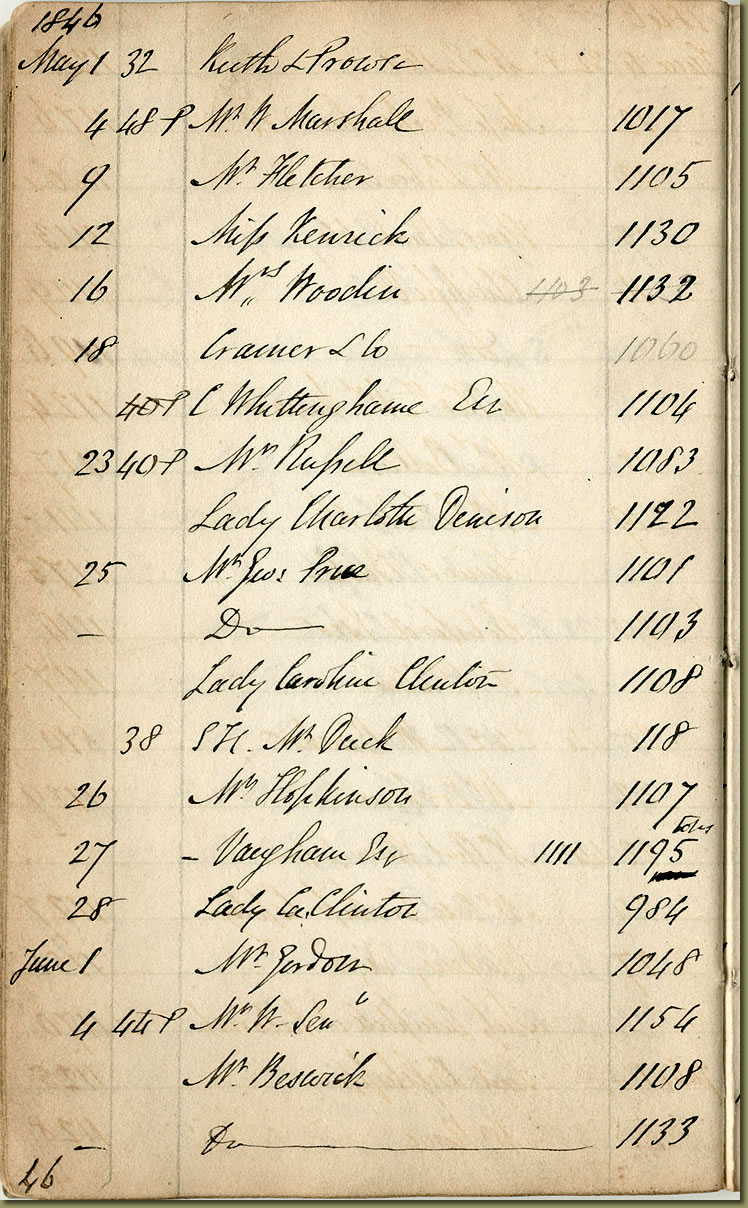 1846
May 1 32 Keith & Prowse
4 48 P Mr W Marshall 1017
9 Mr Fletcher 1105
12 Miss Kenrick 1130
16 Mrs Woodin 1103 1132
18 Cramer & Co 1060
40 P C Whittinghame Esr 1104
23 40 P Mrs Russell 1083
Lady Charlotte Denison 1122
25 Mr Geo: Price 1101
— Do 1103
Lady Caroline Clinton 1108
38 Mr Duck 118
26 Mrs Hopkinson 1107
27 – Vaugham Esq 1111 1195
28 Lady Ca. Clinton 984
June 1 Mr Gordon 1048
4 44 P Mr W. 1154
Mr Beswick 1108
– Do 1133
46